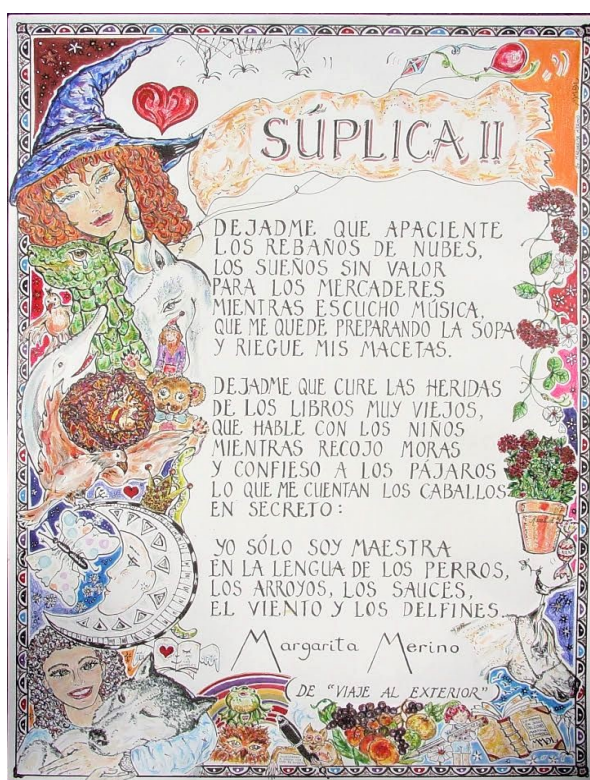 SÚPLICA II
DEJADME QUE APACIENTE
LOS REBAÑOS DE NUBES,
LOS SUEÑOS SIN VALOR
PARA LOS MERCADERES
MIENTRAS ESCUCHO MÚSICA,
QUE ME QUEDE PREPARANDO LA SOPA
Y RIEGUE MIS MACETAS.
DEJADME QUE CURE LAS HERIDAS
DE LOS LIBROS MUY VIEJOS,
QUE HABLE CON LOS NIÑOS
MIENTRAS RECOJO MORAS
Y CONFIESO A LOS PÁJAROS
LO QUE ME CUENTAN LOS CABALLOS
EN SECRETO:
YO SÓLO SOY MAESTRA
EN LA LENGUA DE LOS PERROS,
LOS ARROYOS, LOS SAUCES,
EL VIENTO Y LOS DELFINES.
Margarita Merino
DE "VIAJE AL EXTERIOR"